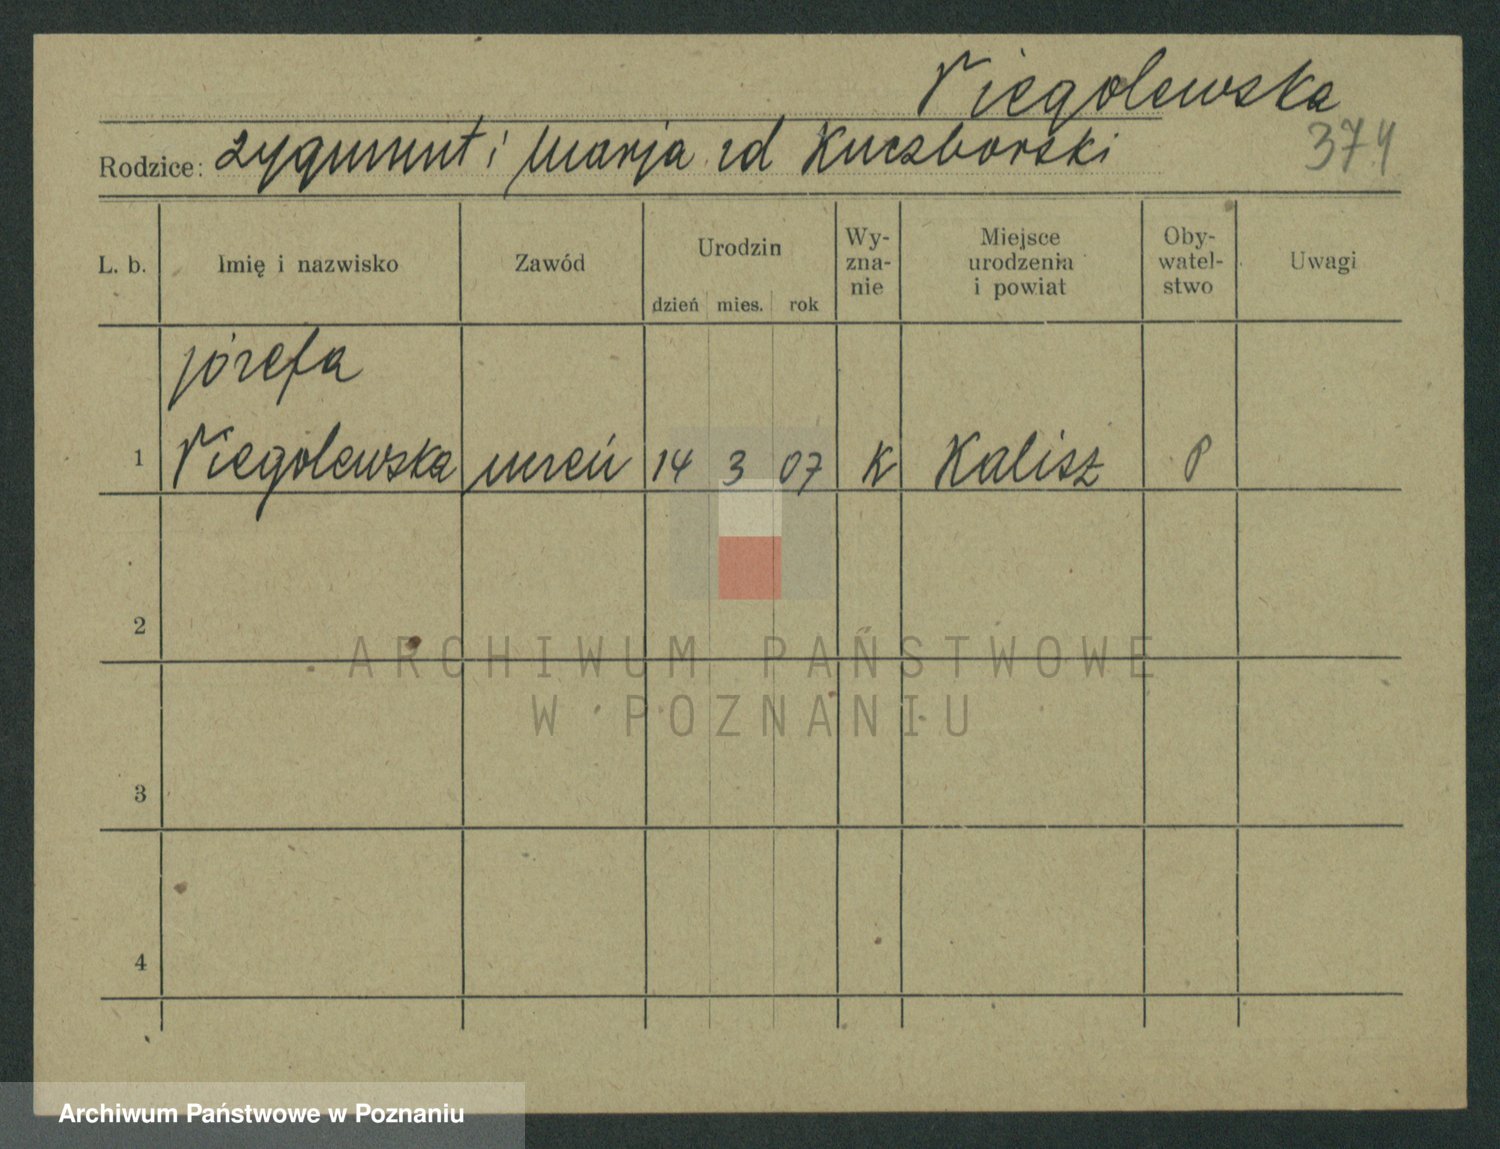 Niegolewska
Rodzice: Zygmunt i Marja zd Kuczborski 374
L. b. Imię i nazwisko Zawód Urodzin dzień mies. rok Wy-zna-nie Miejsce urodzenia i powiat Oby-watel-stwo Uwagi
Józefa
1 Niegolewska uczeń 14 3 07 K Kalisz P
2
ARCHIWUM PAŃSTWOWE
W POZNANIU
3
4
Archiwum Państwowe w Poznaniu